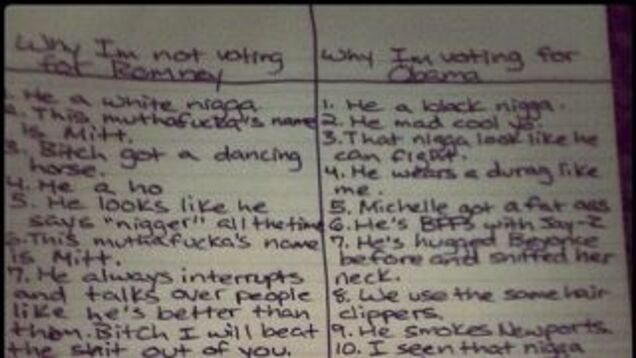 Why I'm not voting
for Romney
1. He a white nigga
2. This muthafucka's name
is Mitt.
3. Bitch got a dancing
horse.
4. He a ho
5. He looks like he
says "nigger" all the time
6. This muthafucka's name
is Mitt.
7. He always interrupts
and talks over people
like he's better than
them. Bitch I will beat
the shit out of you.
Why I'm voting for
Obama
1. He a black nigga.
2. He mad cool yo.
3. That nigga look like he
can fight.
4. He wears a durag like
me.
5. Michelle got a fat ass
6. He's BFFs with Jay-Z
7. He's hugged Beyonce
before and sniffed her
neck.
8. We use the same hair
clippers.
9. He smokes Newports.
10. I seen that nigga